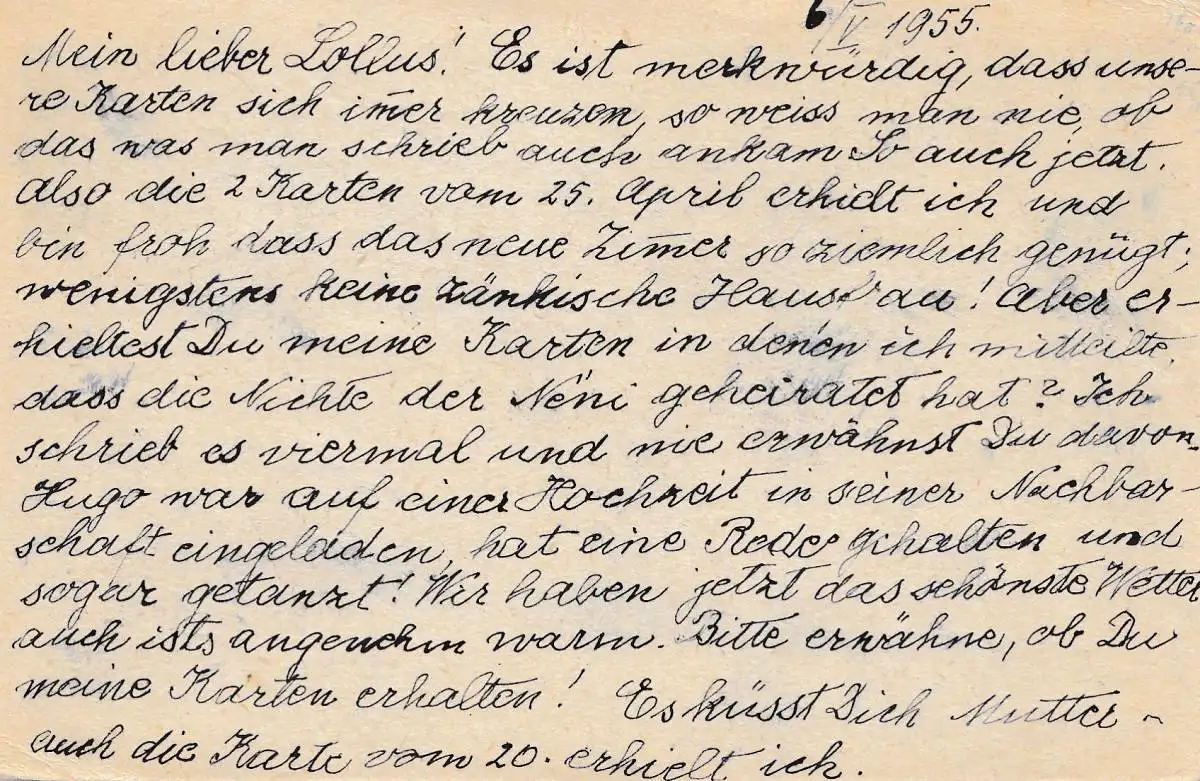 6/V 1955.
Mein lieber Lollus! Es ist merkwürdig, dass unse-
re Karten sich im̄er kreuzen, so weiss man nie, ob
das was man schrieb auch ankam So auch jetzt.
Also die 2 Karten vom 25. April erhielt ich und
bin froh dass das neue Zim̄er so ziemlich genügt;
wenigstens keine zänkische Hausfrau! Aber er-
hieltest Du meine Karten in denen ich mitteilte,
dass die Nichte der Néni geheiratet hat? Ich
schrieb es viermal und nie erwähnst Du davon-
Hugo war auf einer Hochzeit in seiner Nachbar-
schaft eingeladen, hat eine Rede gehalten und
sogar getanzt! Wir haben jetzt das schönste Wetter
auch ists angenehm warm. Bitte erwähne, ob Du
meine Karten erhalten! Es küsst Dich Mutter -
auch die Karte vom 20. erhielt ich.